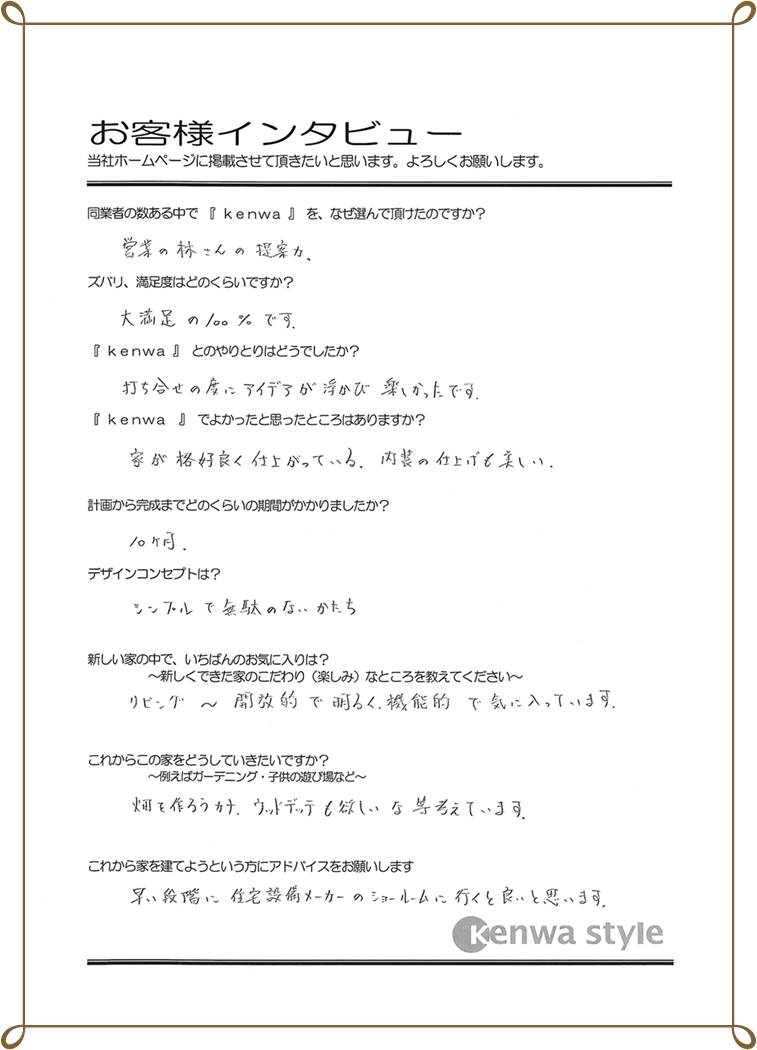 お客様インタビュー
当社ホームページに掲載させて頂きたいと思います。よろしくお願いします。
同業者の数ある中で『kenwa』を、なぜ選んで頂けたのですか？
営業の林さんの提案力、
ズバリ、満足度はどのくらいですか？
大満足の100%です。
『kenwa』とのやりとりはどうでしたか？
打ち合せの度にアイデアが浮かび 楽しかったです。
『kenwa』でよかったと思ったところはありますか？
家が格好良く仕上がっている。内装の仕上げも美しい。
計画から完成までどのくらいの期間がかかりましたか？
10ヶ月。
デザインコンセプトは？
シンプルで無駄のないかたち
新しい家の中で、いちばんのお気に入りは？
～新しくできた家のこだわり（楽しみ）なところを教えてください～
リビング ～ 開放的で明るく、機能的で気に入っています。
これからこの家をどうしていきたいですか？
～例えばガーデニング・子供の遊び場など～
畑を作ろうカナ、ウッドデッテも欲しいな等考えています。
これから家を建てようという方にアドバイスをお願いします
早い段階に住宅設備メーカーのショールームに行くと良いと思います。
kenwa style